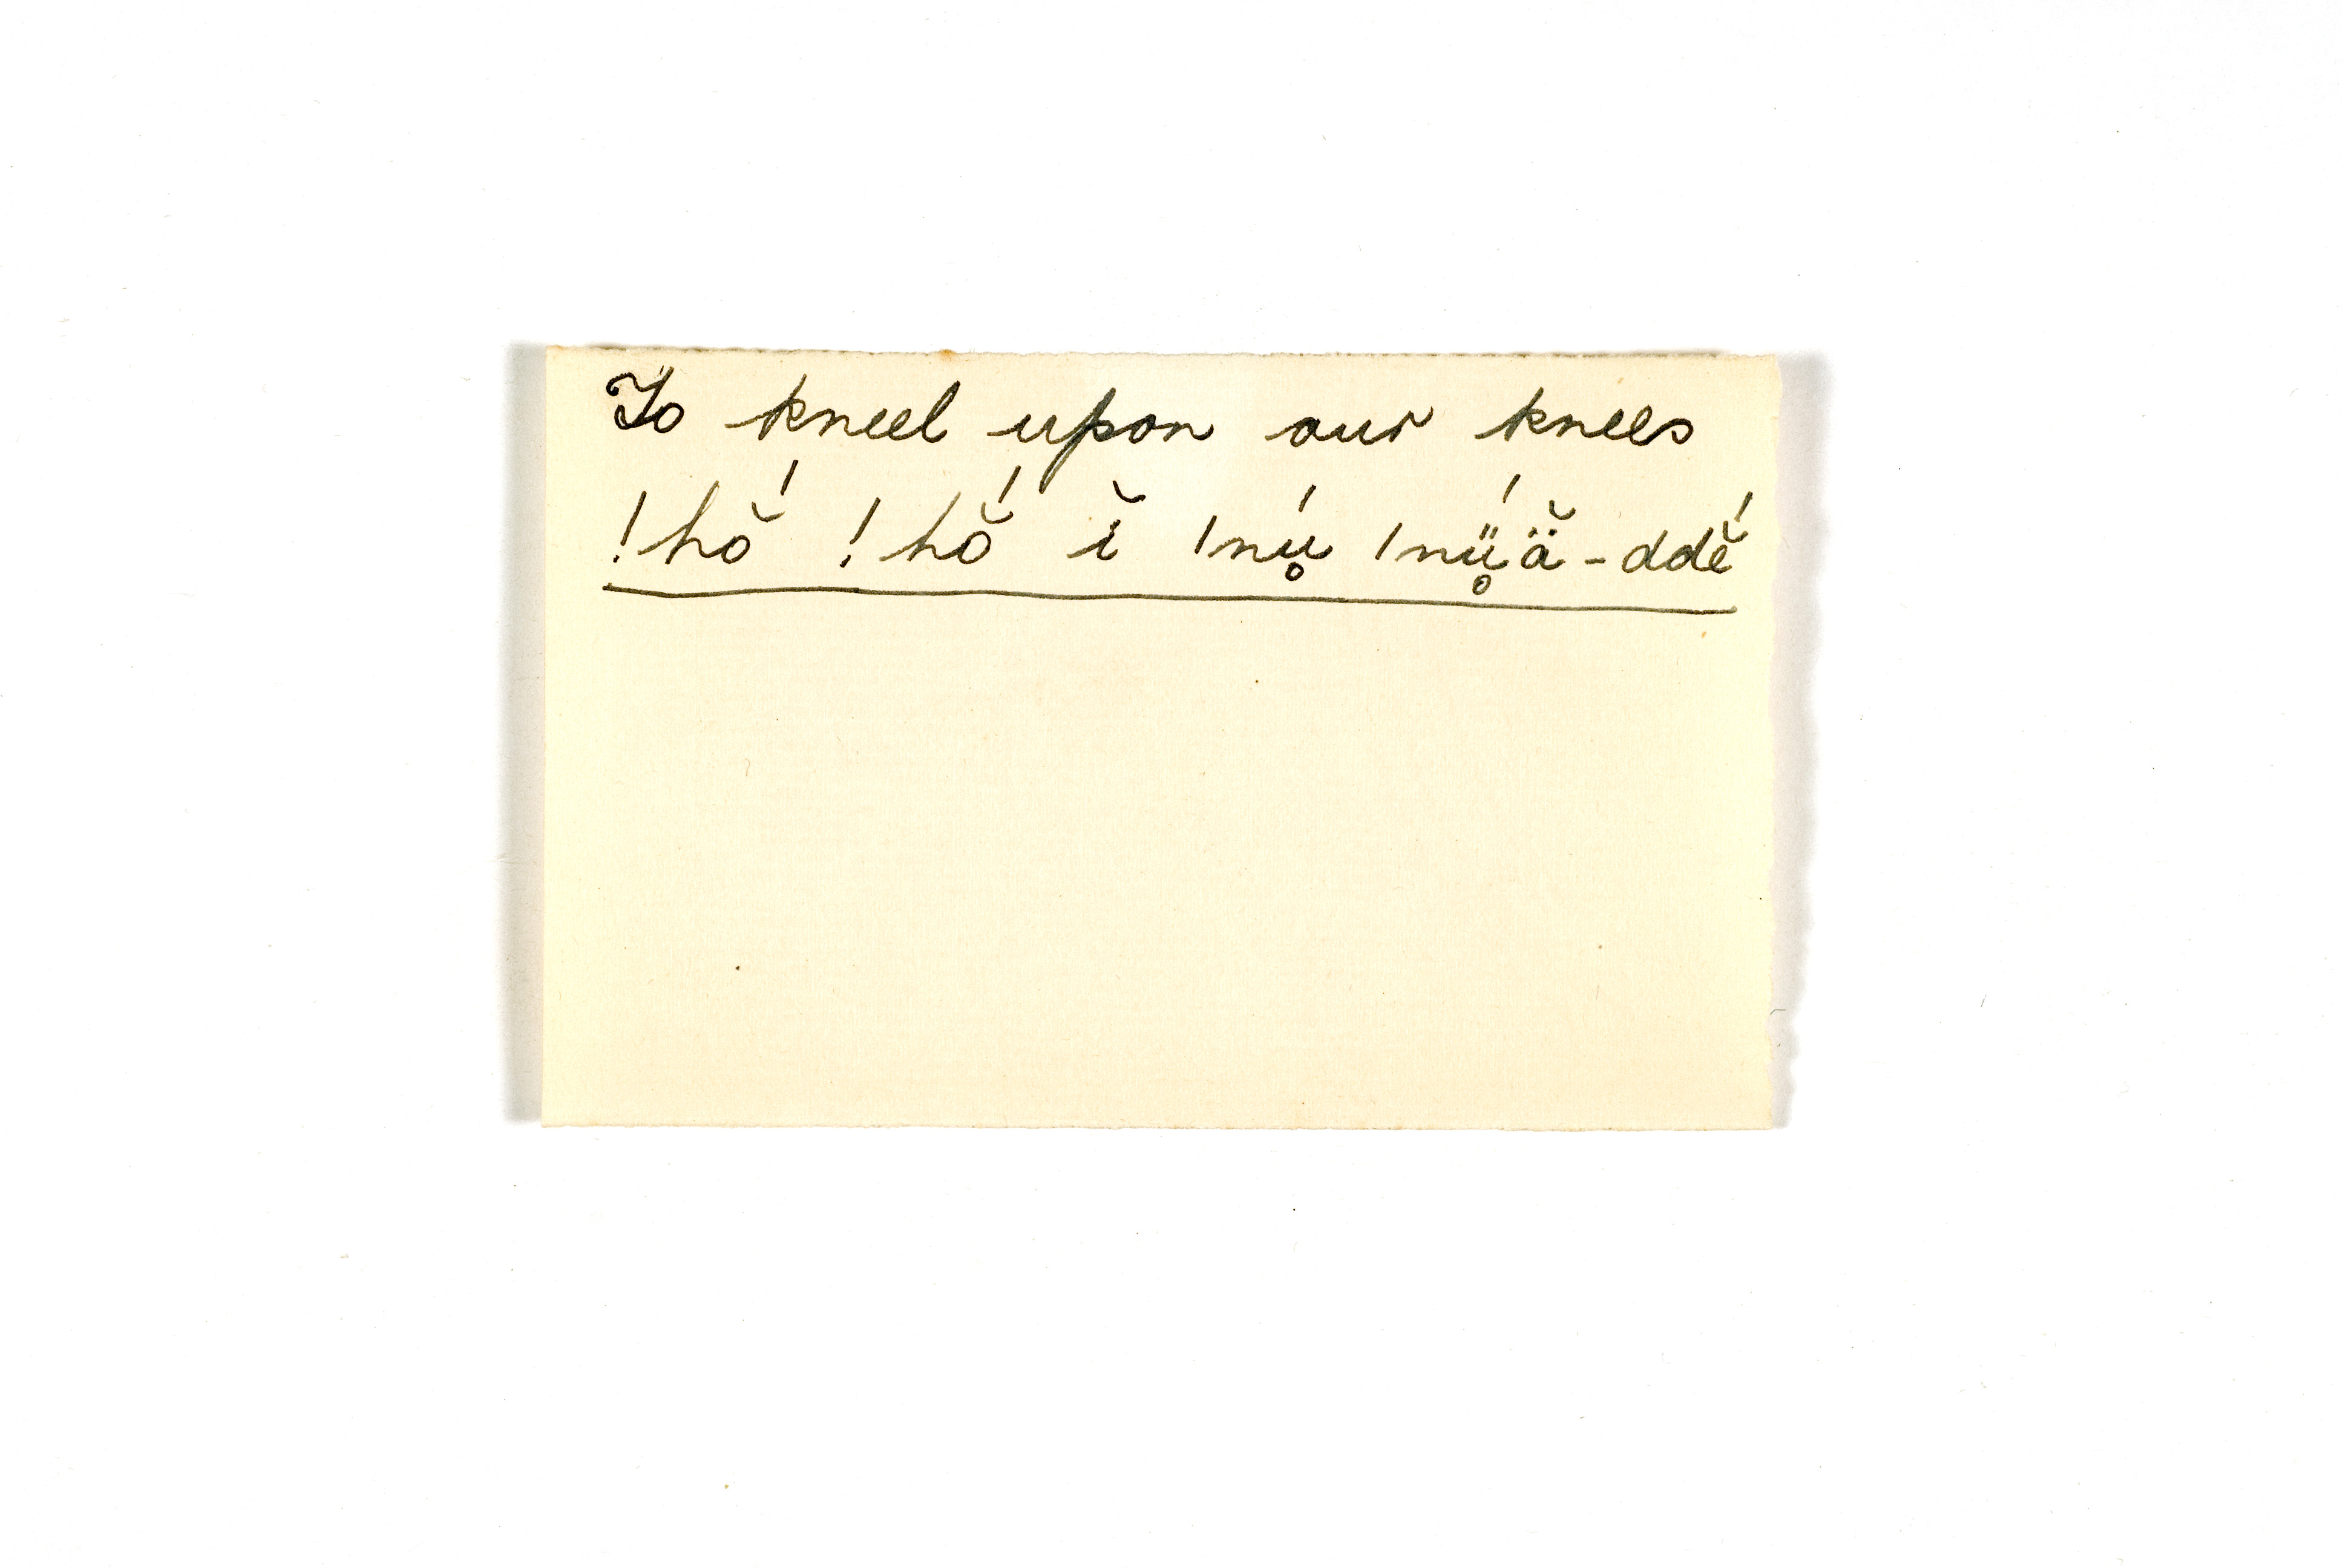 To kneel upon our knees
!hŏ́ !hŏ́ ĭ ǀnú̥ ǀnǘ̥ä̆-ddĕ́